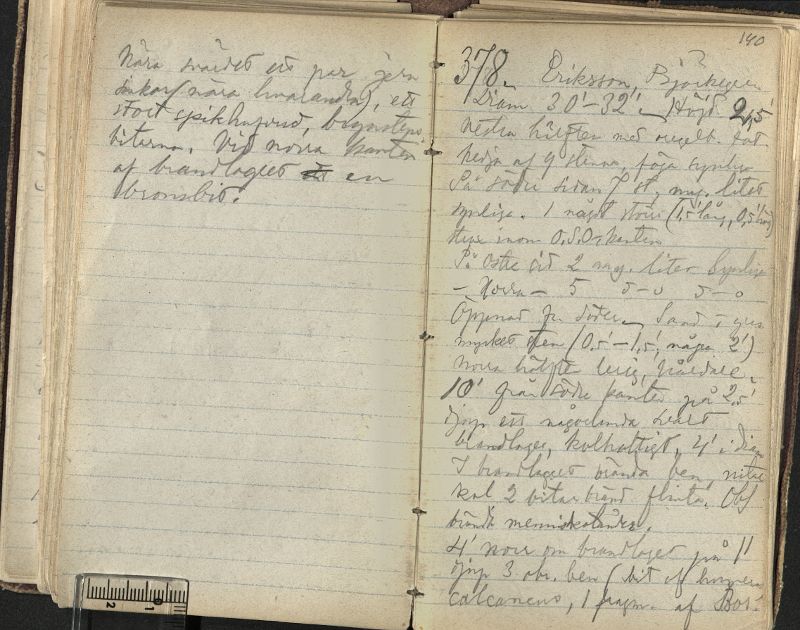 Nära svärdet ett par jern
sinkor (nära hvarandra), ett
stort spikhufvud,
bitarna. Vid norra kanten
af brandlagret en
bronsbit.
140
378. Eriksson, Björkegren
Diam. 30'-32'. Höjd 2,5'
Nedra hälften med oregelb. fot
kedja af 9 stenar, föga synlig
På södra sidan 7 st, myc. litet
synliga. 1 något större (1,5' lång, 0,5' bred)
strax inom O.S.O. kanten
På östra sid 2 myc. litet synliga
- Norra - 5 d-o d-o
Öppnad fr. söder. Sand o grus
mycket sten (0,5'-1,5', några 2')
norra hälften lerig,
10' från södra kanten på 2,5'
djup ett någorlunda svart
brandlager, kolhaltigt, 4' i diam
I brandlagret brända ben,
kol 2 bitar bränd flinta. Obs
brända menniskotänder.
4' norr om brandlaget på 1'
djup 3 obr. ben (bit af humerus
calcaneus, 1 fragm. af Bos.
2 1